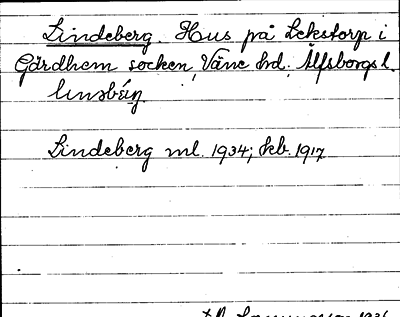 Lindeberg. Hus på Lekstorp i
Gärdhem socken, Väne hd. Älfsborgs l.
Lindeberg ml. 1934; kb. 1917